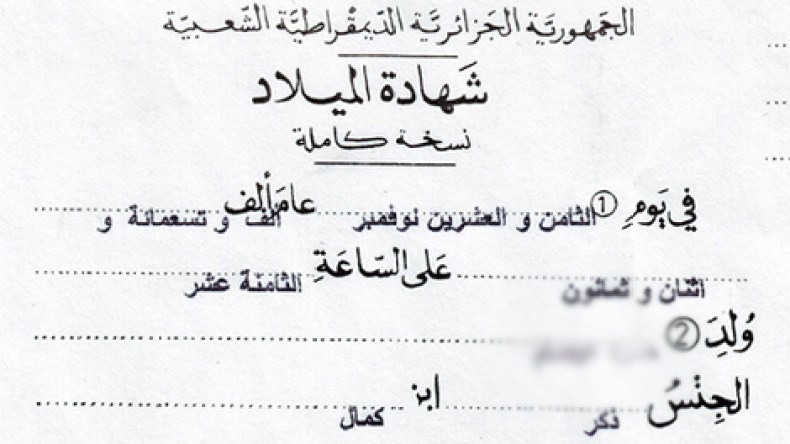 الجَمهوريَّة الجَزائريَّة الدّيمقْراطيَّة الشّعبيَّة
شَهادة الميلاد
نسخة كاملة
في يَومِ ① الثامن و العشرين نوفمبر عامَ ألف ألف و تسعمائة و
اثنان و ثمانون عَلى السّاعَةِ الثامنة عشر
وُلدَ ②
الجِنْسُ ذكر ابن كمال